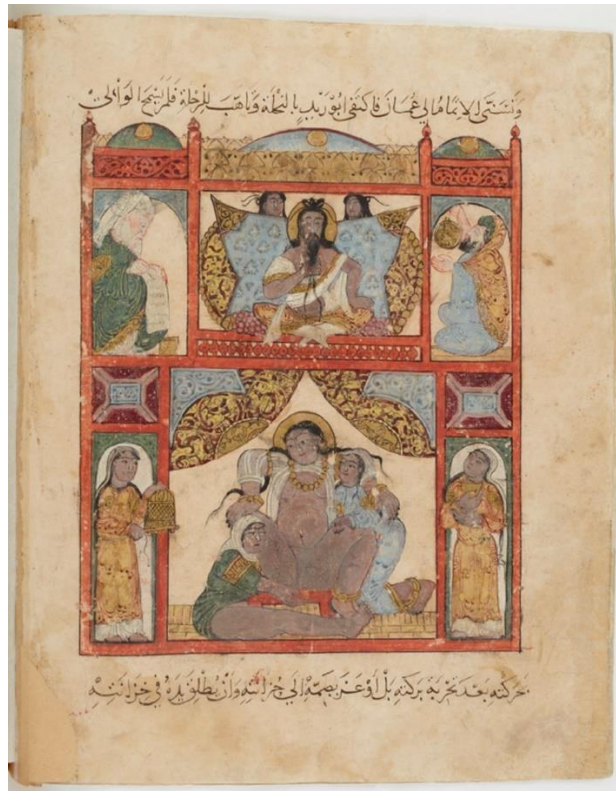 وتسنى الاتمام الى عمان فاكتفى ابو زيد بالنحلة وتاهب للرحلة فلم يسمح الوالي
بحركته بعد تجربة بركته بل اوعز بضمه الى حزانته وان يطلق يده في خزانته